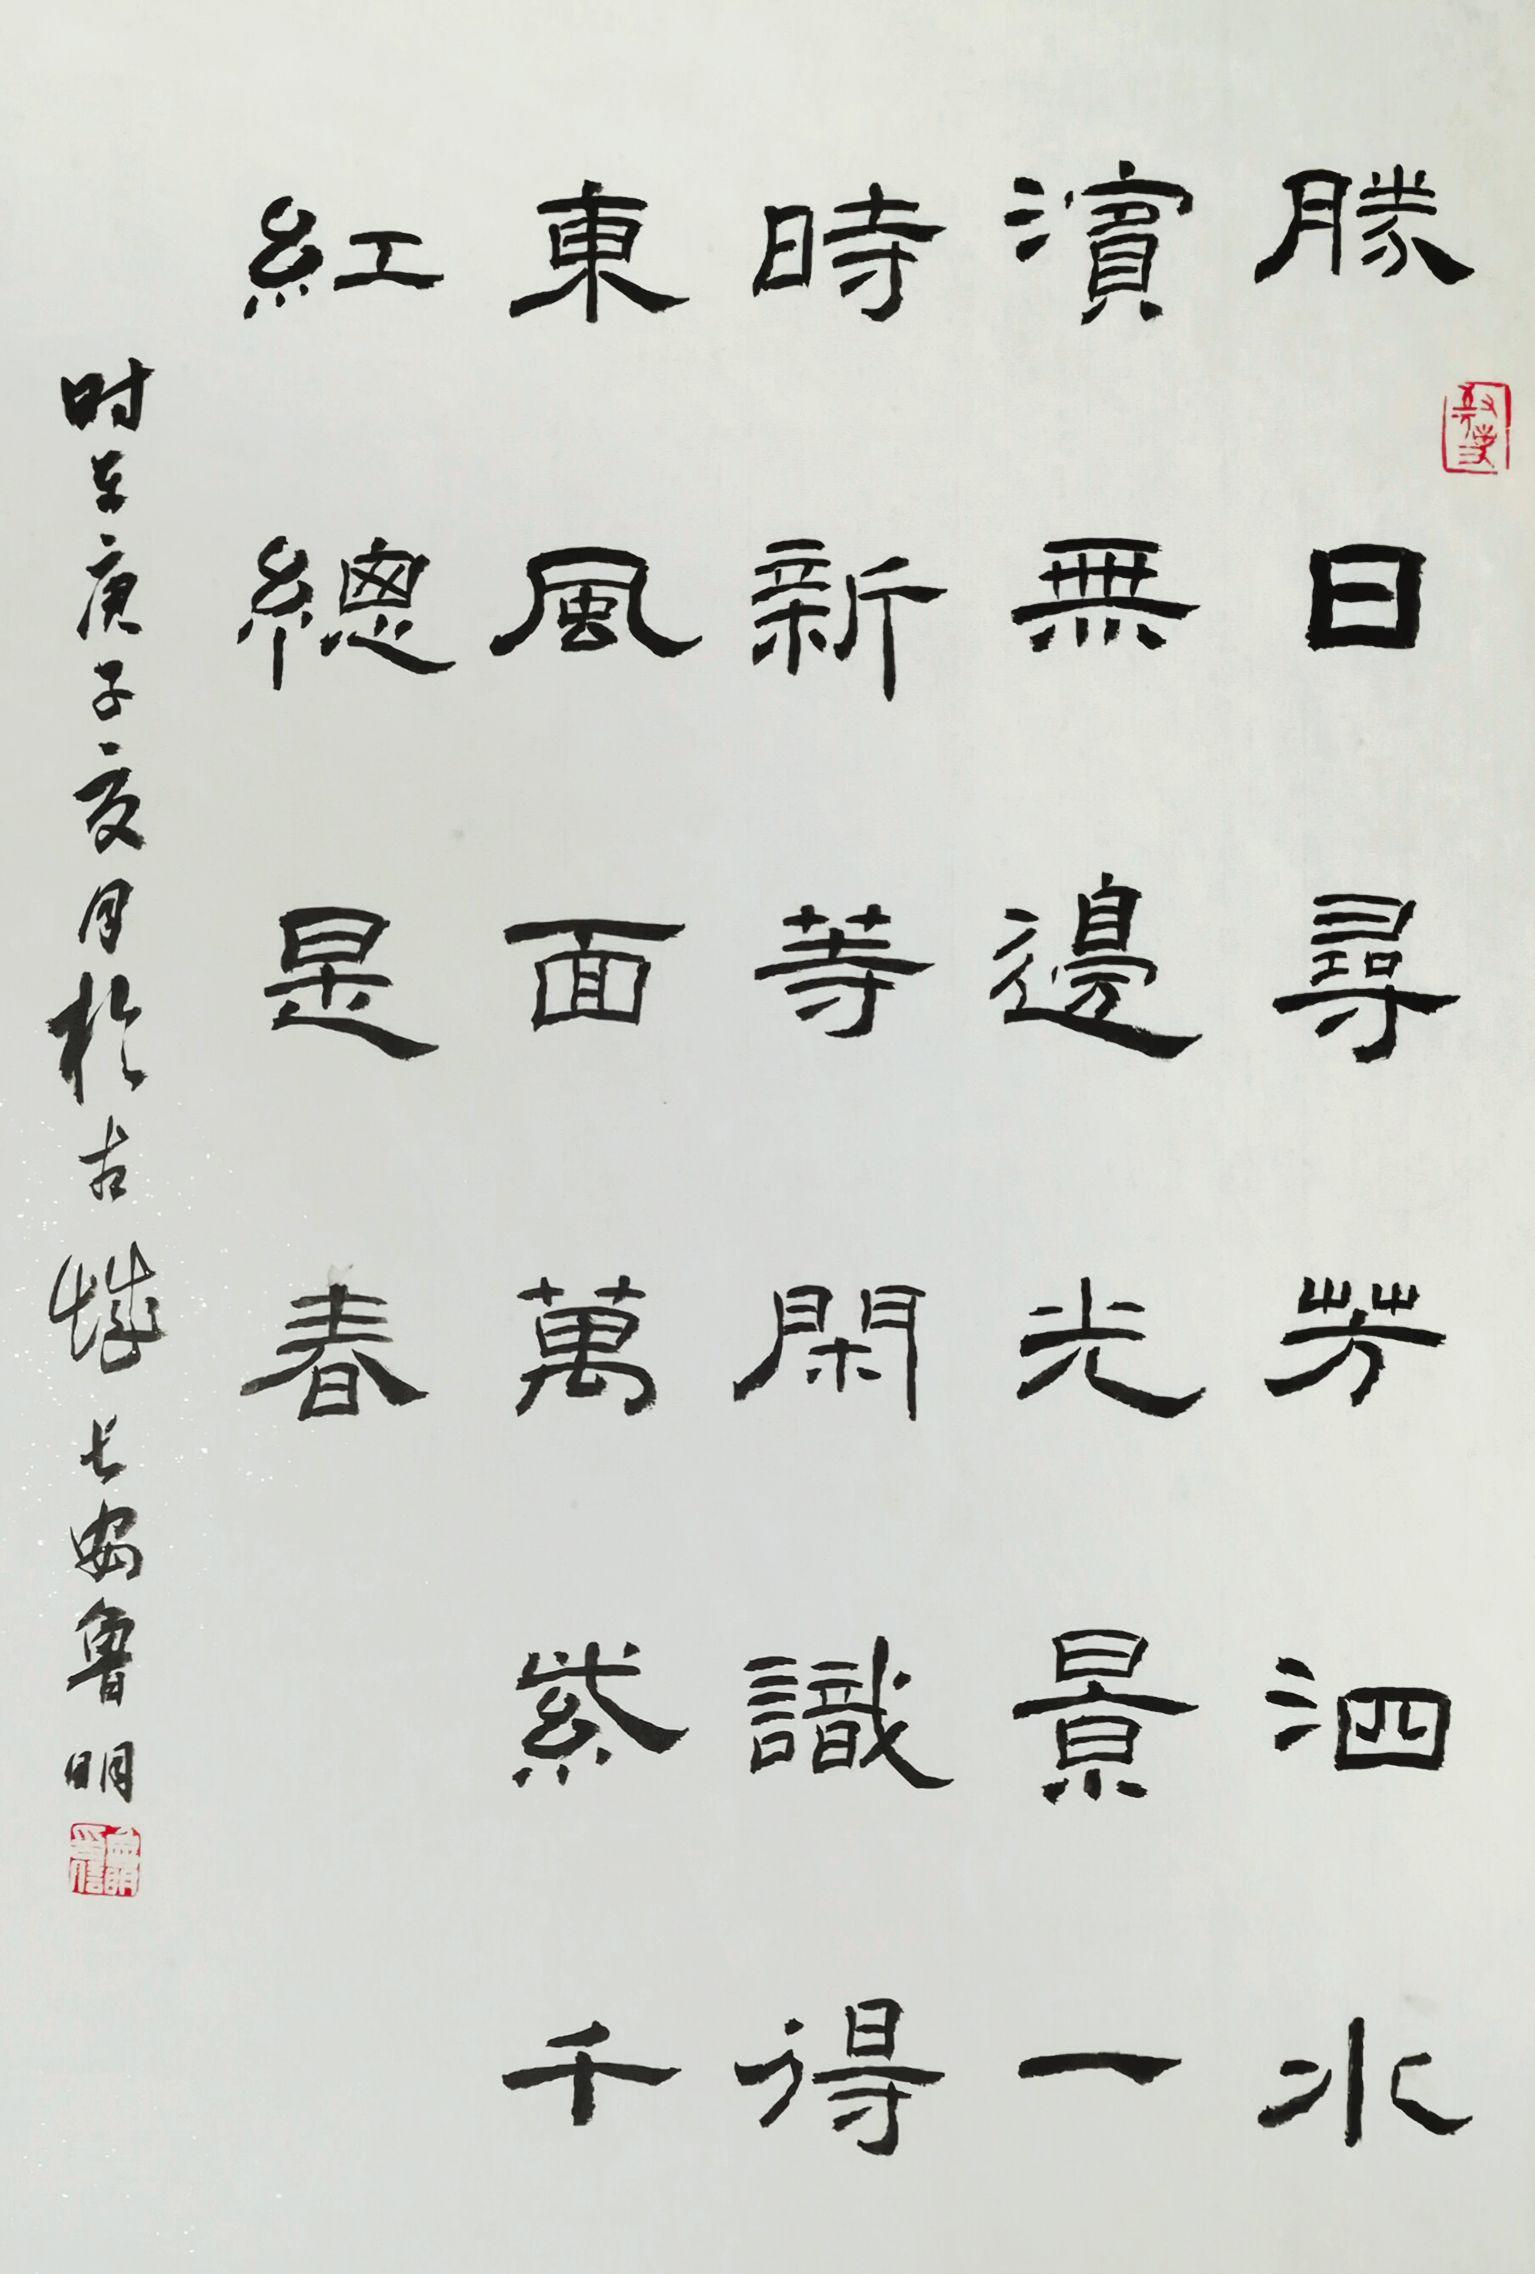 勝日尋芳泗水
濱無邊光景一
時新等閑識得
東風面萬紫千
紅總是春
时在庚子亥月於古城长安鲁明